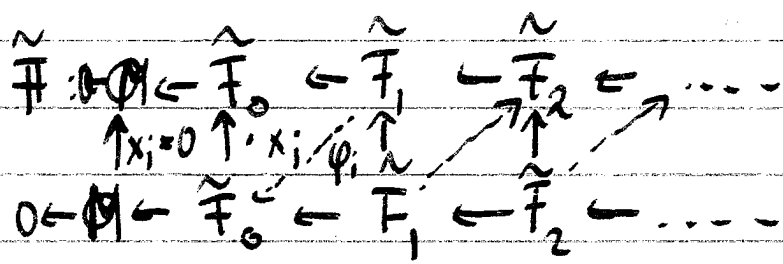 F̃ : 0 ← M ← F̃₀ ← F̃₁ ← F̃₂ ← .....
↑ xᵢ=0 ↑ · xᵢ φᵢ ↑ ↑
0 ← M ← F̃₀ ← F̃₁ ← F̃₂ ← .....